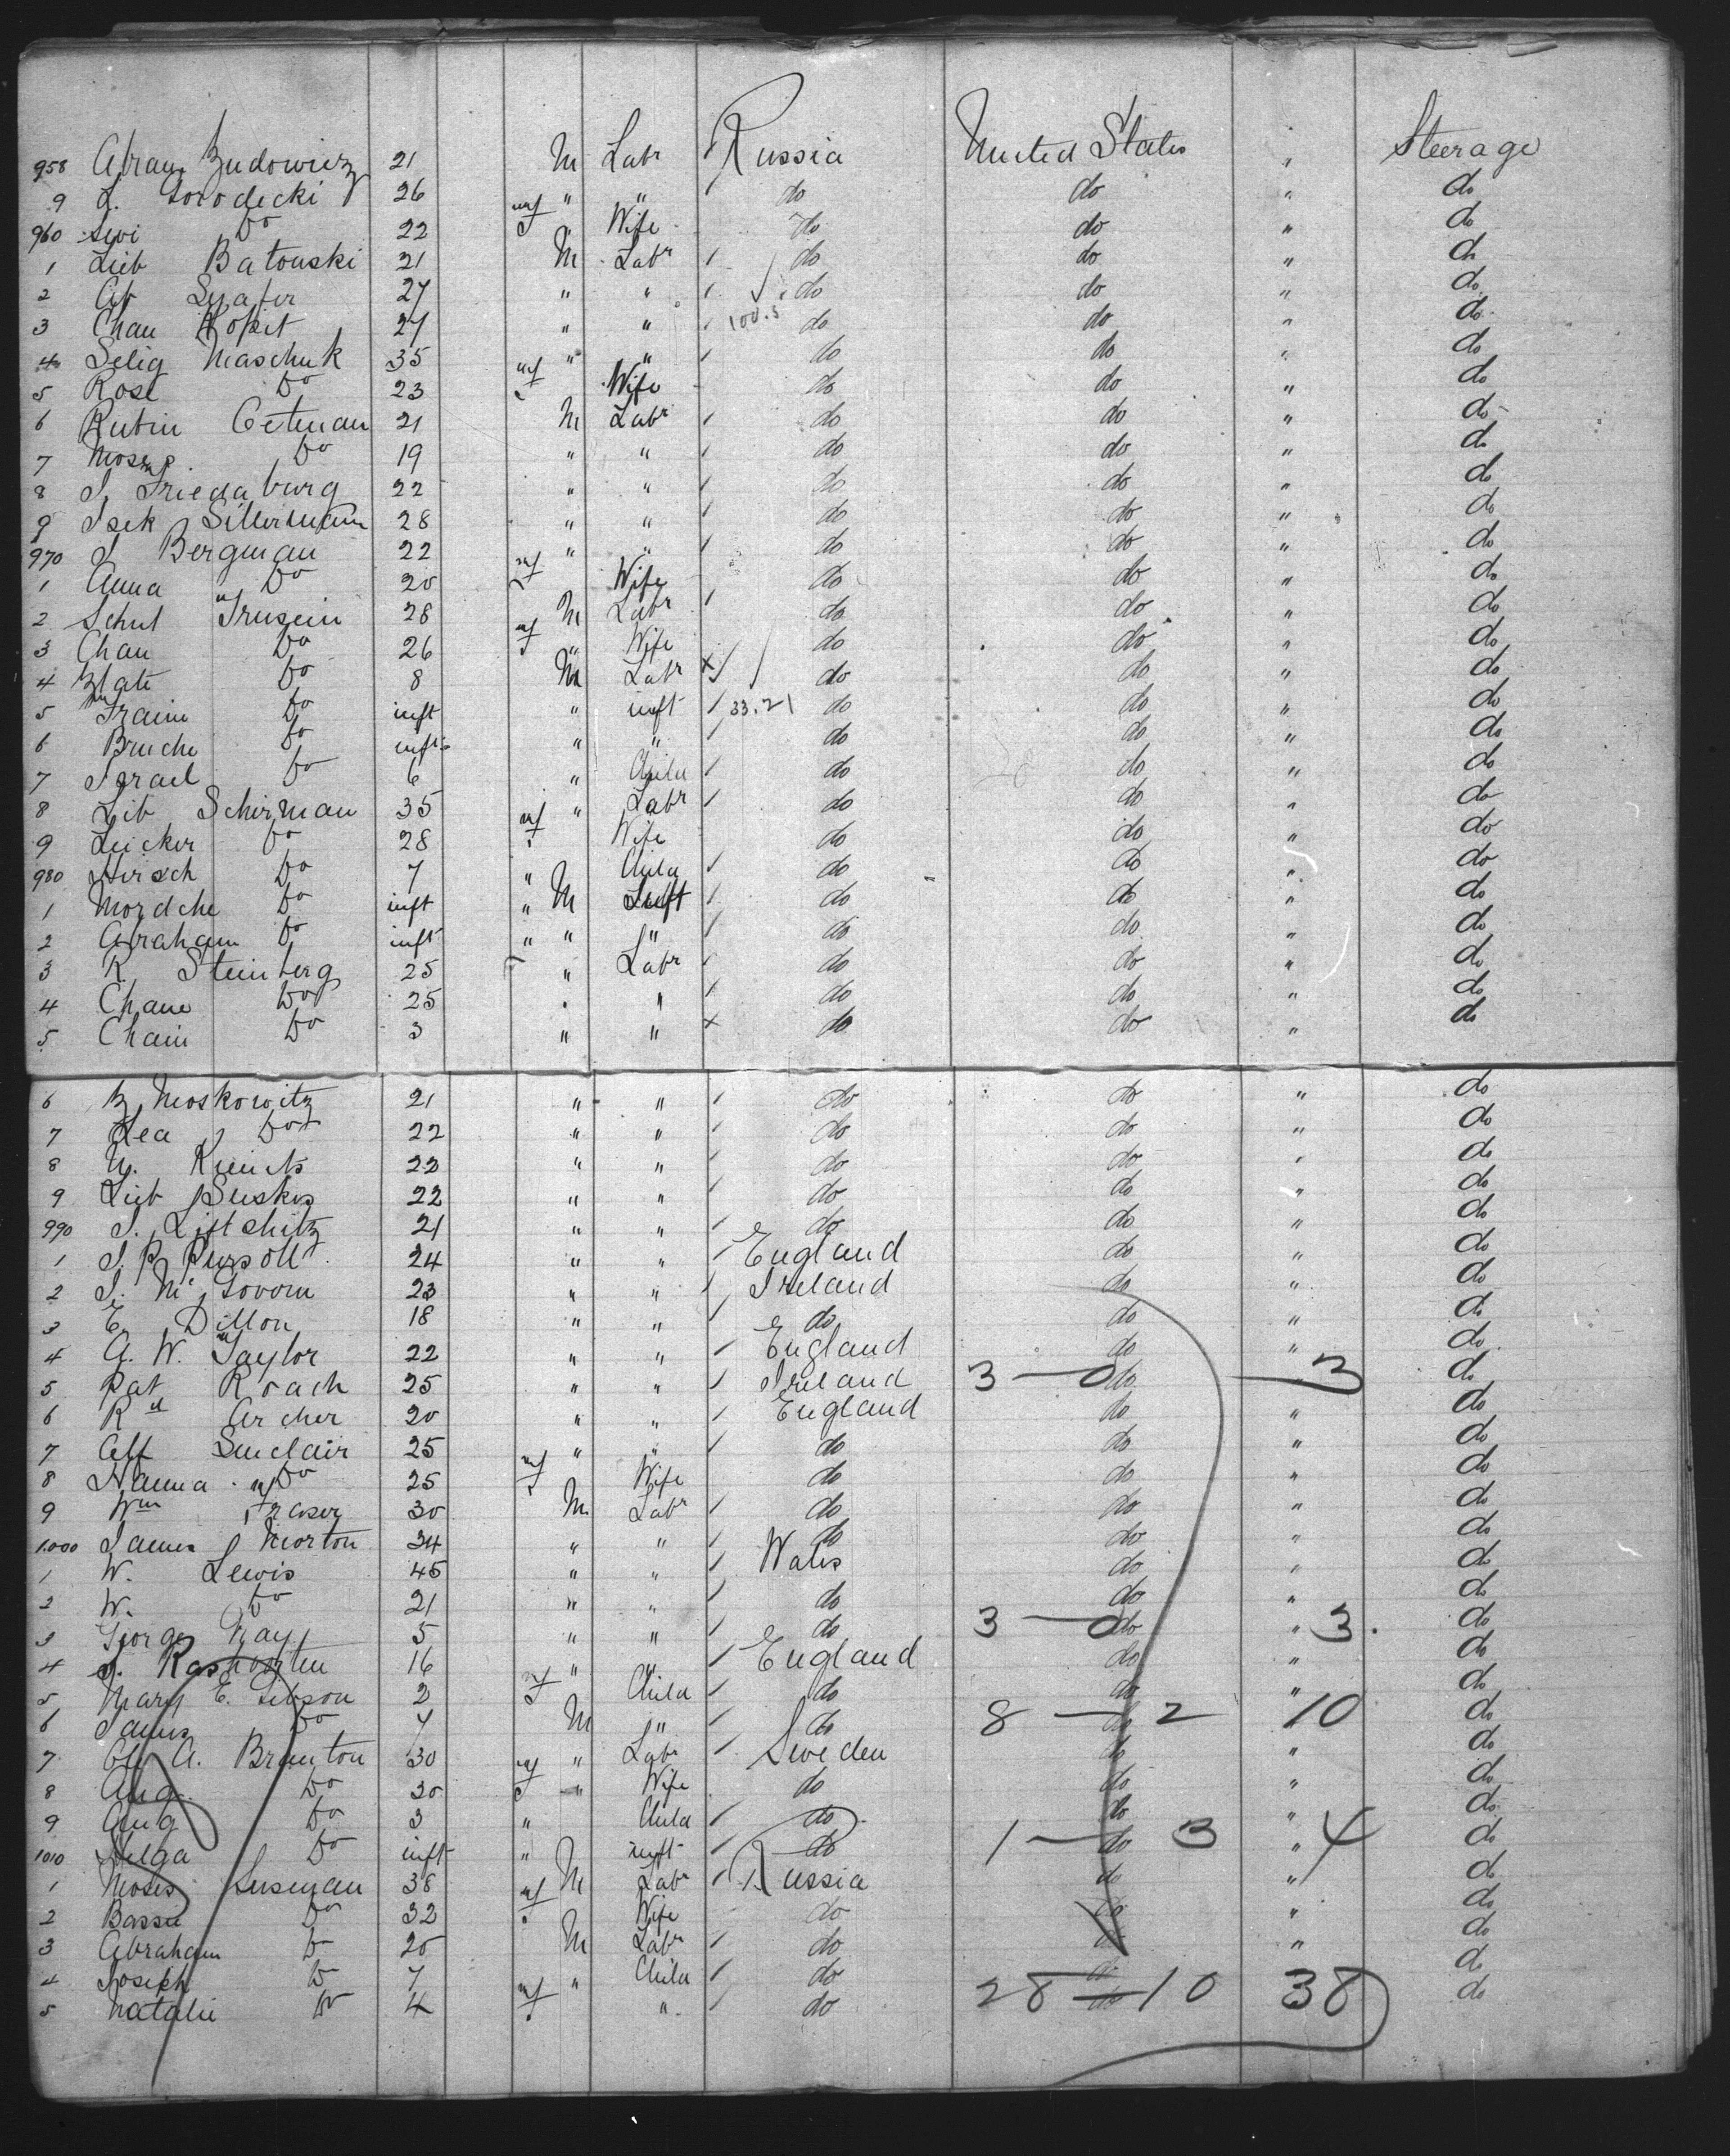 958 Abram Budowicz 21 M Labr / Russia United States " Steerage
9 L. Gorodecki 26 " " / do do " do
960 Sewi Do 22 mf " Wife do do " do
1 Lieb Batouski 21 M Labr / do do " do
2 Ab 27 " " / do do " do
3 Chan Kopit 27 " " / 100.5 do do " do
4 Selig Maschuk 35 " " / do do " do
5 Rose Do 23 mf Wife do do " do
6 Rubin Getman 21 M Labr / do do " do
7 Moses Do 19 " " / do do " do
8 J. Friedaburg 22 " " / do do " do
9 Isek Silberman 28 " " / do do " do
970 J Bergman 22 " " / do do " do
1 Anna Do 20 mf Wife do do " do
2 Schul Trusein 28 M Labr / do do " do
3 Chan Do 26 mf " Wife do do " do
4 Zlate Do 8 M Labr x do do " do
5 Fraim Do inft " inft / 33.21 do do " do
6 Bruche Do inft " " / do do " do
7 Israel Do 6 " Child / do do " do
8 Lib Schirman 35 " Labr / do do " do
9 Do 28 mf Wife do do " do
980 Hirsch Do 7 " Child / do do " do
1 Mordche Do inft " M Inft / do do " do
2 Abraham Do inft " " " / do do " do
3 R. Steinberg 25 " Labr / do do " do
4 Chane Do 25 " " / do do " do
5 Chaim Do 3 " " x do do " do
6 B. Moskowitz 21 " " / do do " do
7 Lea Do 22 " " / do do " do
8 22 " " / do do " do
9 Lieb 22 " " / do do " do
990 S. Liftchitz 21 " " / do do " do
1 J. P. Pursoll 24 " " / England do " do
2 J. Mc Govorn 23 " " / Ireland do " do
3 E. Dillon 18 " " / do do " do
4 A. W. Taylor 22 " " / England do " do
5 Pat Roach 25 " " / Ireland 3 — do 3 do
6 Rd Archer 20 " " / England do " do
7 Alf Sinclair 25 " " / do do " do
8 Hanna Do 25 mf Wife do do " do
9 Wm Fraser 30 M Labr / do do " do
1.000 James Morton 34 " " / do do " do
1 W. Lewis 45 " " / Wales do " do
2 W. Do 21 " " / do do " do
3 George Way 5 " " / do 3 — do " 3. do
4 J. 16 " " / England do " do
5 Mary E. Gibson 2 mf Child / do do " do
6 James Do 7 M " / do 8 — 2 10 do
7 A. Branton 30 " Labr / Sweden do " do
8 Aug. Do 30 mf " Wife do do " do
9 Aug Do 3 " Child / do do " do
1010 Helga Do inft " M inft / do 1 — do 3 " 4 do
1 Moses Susman 38 M Labr / Russia do " do
2 Bassie Do 32 mf Wife do do " do
3 Abraham Do 20 M Labr / do do " do
4 Joseph Do 7 " Child / do do do
5 Natalie Do 4 mf " / do 28 — 10 38 do